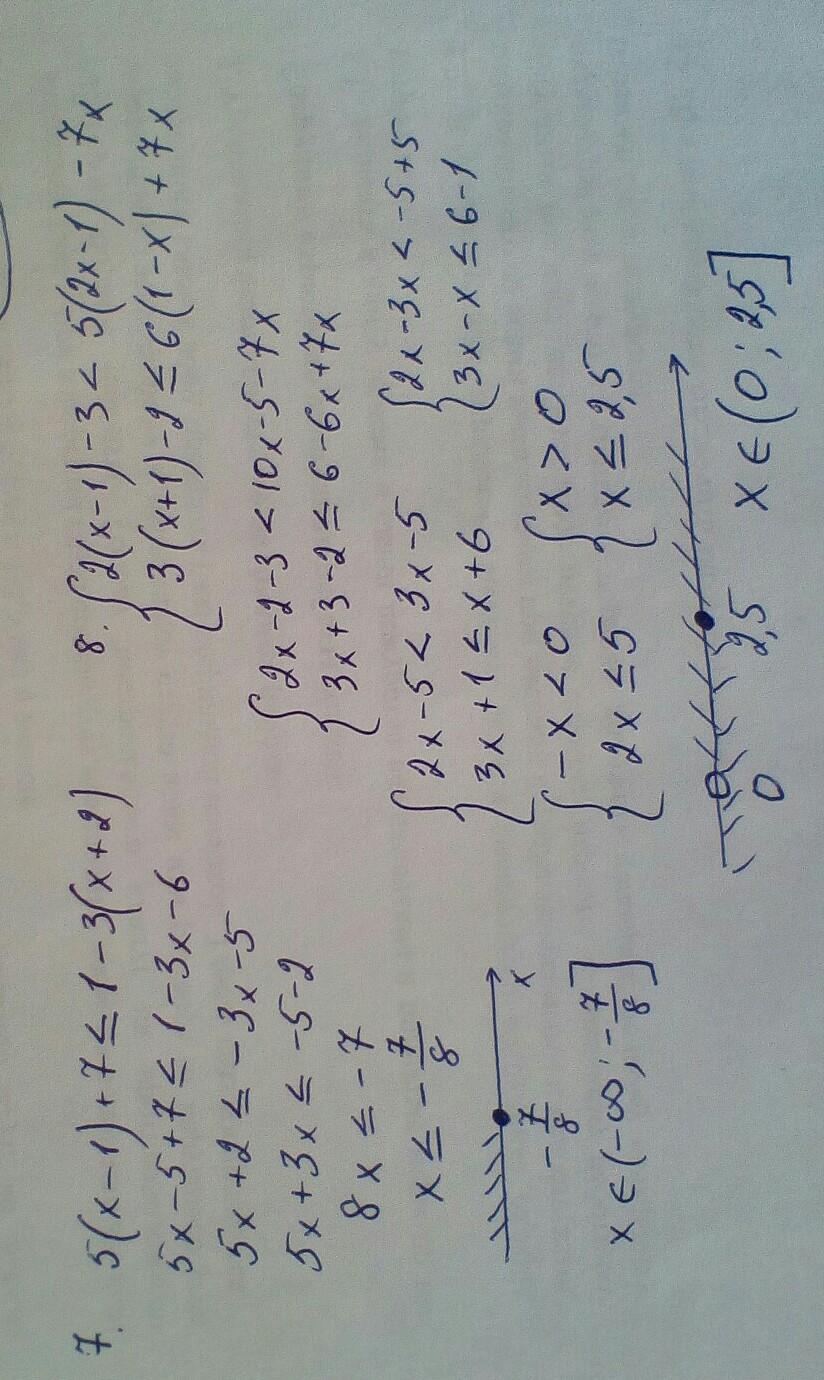 7. 5(x-1)+7≤1-3(x+2)
5x-5+7≤1-3x-6
5x+2≤-3x-5
5x+3x≤-5-2
8x≤-7
x≤-7/8
-7/8 x
x∈(-∞;-7/8]
8. {2(x-1)-3<5(2x-1)-7x
3(x+1)-2≤6(1-x)+7x
{2x-2-3<10x-5-7x
3x+3-2≤6-6x+7x
{2x-5<3x-5 {2x-3x<-5+5
3x+1≤x+6 3x-x≤6-1
{-x<0 {x>0
2x≤5 x≤2,5
0 2,5 x∈(0;2,5]